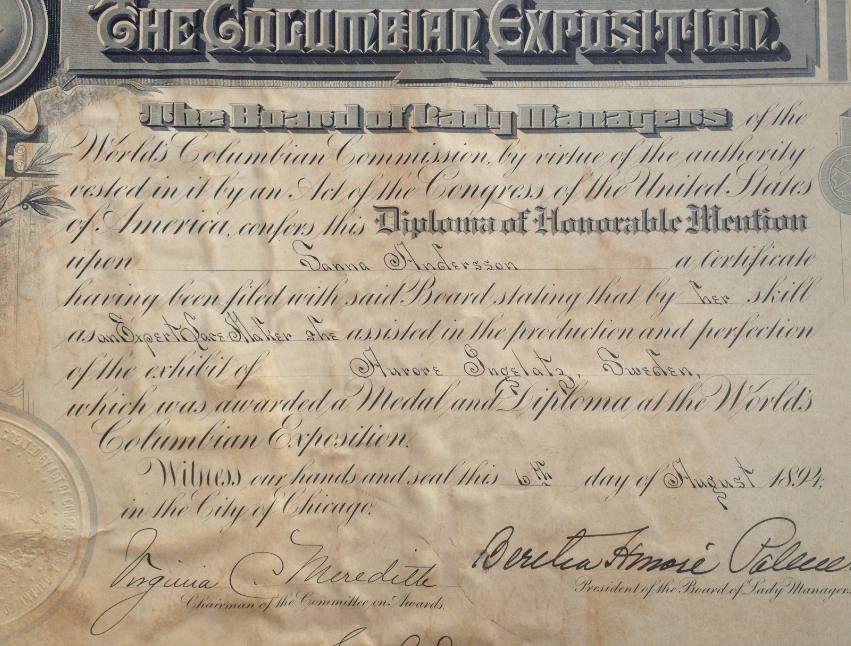 THE COLUMBIAN EXPOSITION.
The Board of Lady Managers of the
World's Columbian Commission, by virtue of the authority
vested in it by an Act of the Congress of the United States
of America, confers this Diploma of Honorable Mention
upon Sanna Andersson a Certificate
having been filed with said Board stating that by her skill
as an Expert Lace Maker she assisted in the production and perfection
of the exhibit of Aurore Ingelatz, Sweden,
which was awarded a Medal and Diploma at the World's
Columbian Exposition.
Witness our hands and seal this 6th day of August 1894,
in the City of Chicago.
Virginia C. Meredith
Chairman of the Committee on Awards.
Bertha Honoré Palmer
President of the Board of Lady Managers.